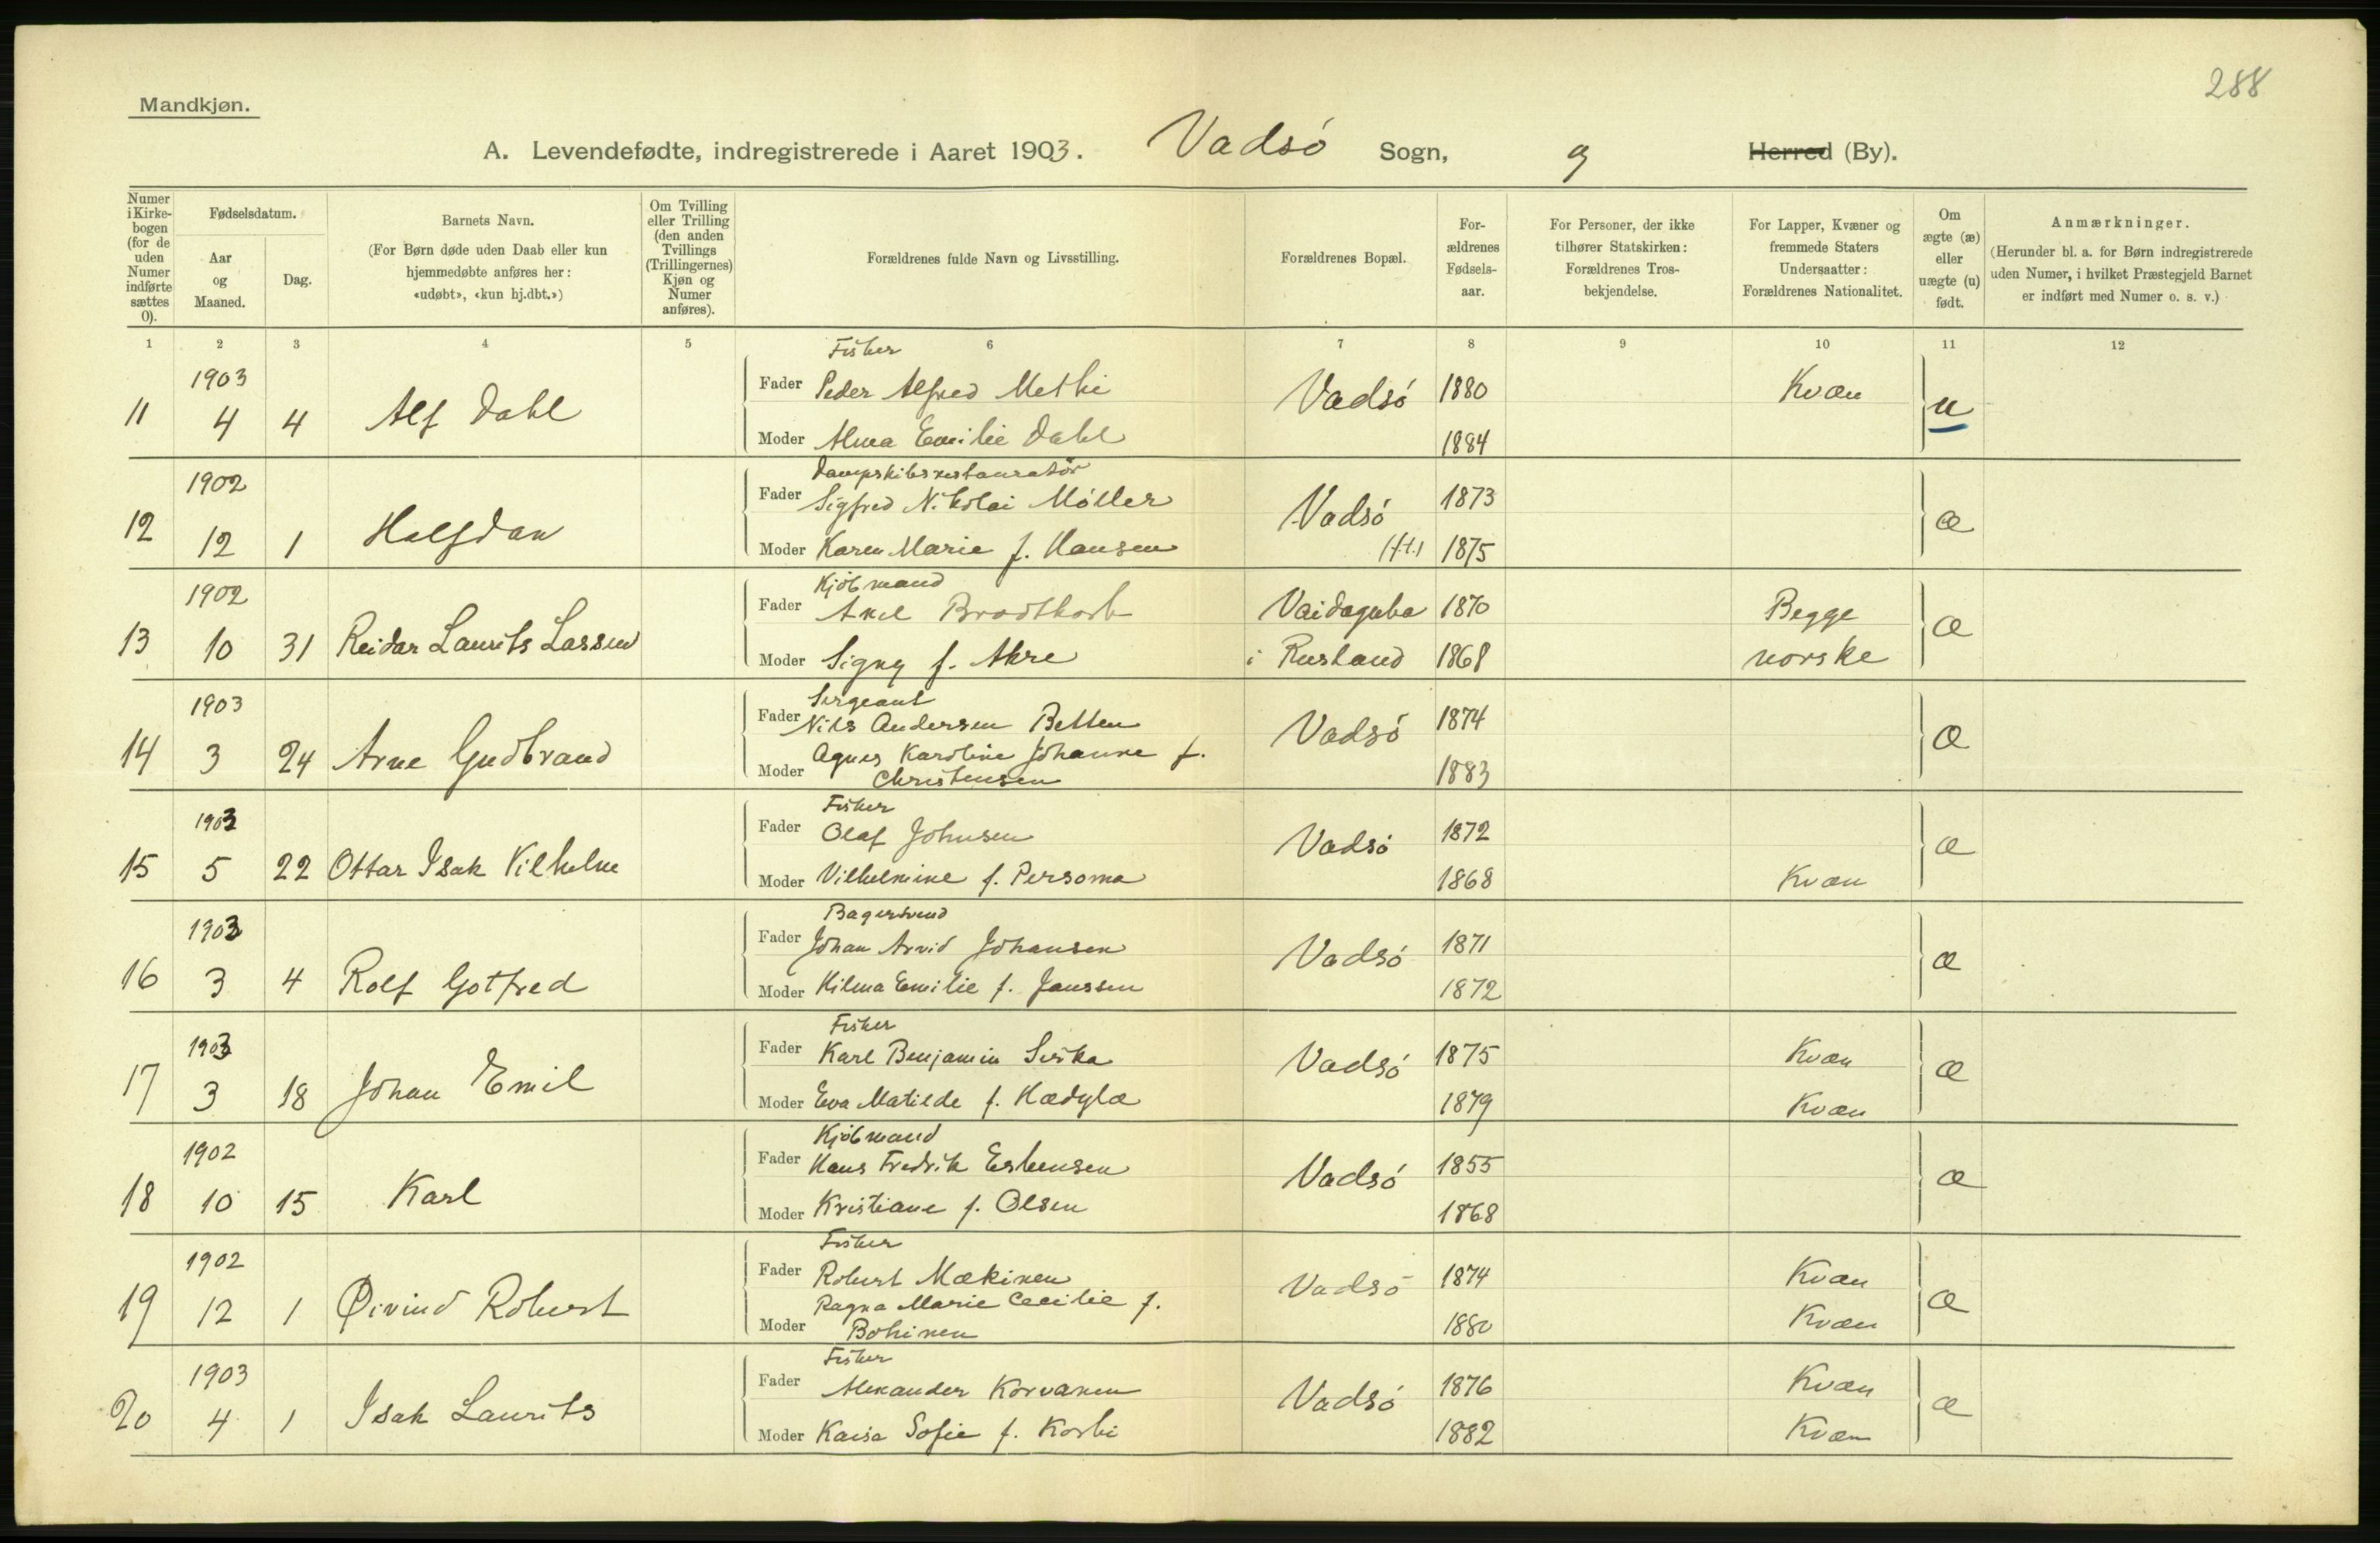 288
Mandkjøn.
A. Levendefødte, indregistrerede i Aaret 1903. Vadsö Sogn, Herred (By).
Numer i Kirke-bogen (for de uden Numer indførte sættes 0).
Fødselsdatum.
Aar og Maaned.
Dag.
Barnets Navn.
(For Børn døde uden Daab eller kun hjemmedøbte anføres her: «udøbt», «kun hj.dbt.»)
Om Tvilling eller Trilling (den anden Tvillings (Trillingernes) Kjøn og Numer anføres).
Forældrenes fulde Navn og Livsstilling.
Forældrenes Bopæl.
For-ældrenes Fødsels-aar.
For Personer, der ikke tilhører Statskirken: Forældrenes Tros-bekjendelse.
For Lapper, Kvæner og fremmede Staters Undersaatter: Forældrenes Nationalitet.
Om ægte (æ) eller uægte (u) født.
Anmærkninger.
(Herunder bl. a. for Børn indregistrerede uden Numer, i hvilket Præstegjeld Barnet er indført med Numer o. s. v.)
1 2 3 4 5 6 7 8 9 10 11 12
Fisker
1903 Fader Peder Alfred Methi Vadsö 1880 Kvæn
11 4 4 Alf Dahl u
Moder Alma Emilie Dahl 1884
Dampskibsrestauratör
1902 Fader Sigfred Nikolai Möller Vadsö 1873
12 12 1 Halfdan æ
Moder Karen Marie f. Hansen 1875
Kjöbmand
1902 Fader Axel Brodtkorb Vaidaguba 1870 Begge
13 10 31 Reidar Laurits Lassen æ
Moder Signy f. Akre i Rusland 1868 norske
Sergeant
1903 Fader Nils Andersen Betten Vadsö 1874
14 3 24 Arne Gudbrand æ
Moder Agnes Karoline Johanne f. Christensen 1883
Fisker
1903 Fader Olaf Johnsen Vadsö 1872
15 5 22 Ottar Isak Vilhelm æ
Moder Vilhelmine f. Persoma 1868 Kvæn
Bagersvend
1903 Fader Johan Arvid Johansen Vadsö 1871
16 3 4 Rolf Gotfred æ
Moder Hilma Emilie f. Janssen 1872
Fisker
1903 Fader Karl Benjamin Siska Vadsö 1875 Kvæn
17 3 18 Johan Emil æ
Moder Eva Matilde f. Hædylæ 1879 Kvæn
Kjöbmand
1902 Fader Hans Fredrik Esbensen Vadsö 1855
18 10 15 Karl æ
Moder Kristiane f. Olsen 1868
Fisker
1902 Fader Robert Mækinen Vadsö 1874 Kvæn
19 12 1 Øivind Robert æ
Moder Ragna Marie Cecilie f. Bohinen 1880 Kvæn
Fisker
1903 Fader Alexander Korvanen Vadsö 1876 Kvæn
20 4 1 Isak Laurits æ
Moder Kaisa Sofie f. Koski 1882 Kvæn